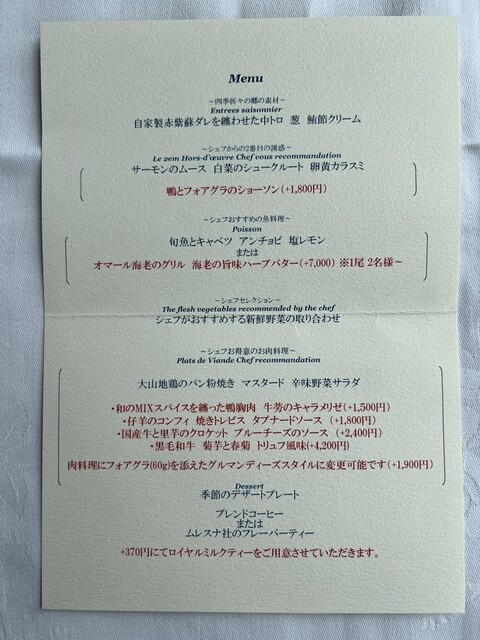 Menu
～四季折々の郷の素材～
Entrees saisonnier
自家製赤紫蘇ダレを纏わせた中トロ 葱 鮪節クリーム
～シェフからの2番目の誘惑～
Le 2em Hors-d'œuvre Chef vous recommandation
サーモンのムース 白菜のシュークルート 卵黄カラスミ
鴨とフォアグラのショーソン(+1,800円)
～シェフおすすめの魚料理～
Poisson
旬魚とキャベツ アンチョビ 塩レモン
または
オマール海老のグリル 海老の旨味ハーブバター(+7,000) ※1尾 2名様～
～シェフセレクション～
The flesh vegetables recommended by the chef
シェフがおすすめする新鮮野菜の取り合わせ
～シェフお得意のお肉料理～
Plats de Viande Chef recommandation
大山地鶏のパン粉焼き マスタード 辛味野菜サラダ
・和のMIXスパイスを纏った鴨胸肉 牛蒡のキャラメリゼ(+1,500円)
・仔羊のコンフィ 焼きトレビス タプナードソース (+1,800円)
・国産牛と里芋のクロケット ブルーチーズのソース (+2,400円)
・黒毛和牛 菊芋と春菊 トリュフ風味(+4,200円)
肉料理にフォアグラ(60g)を添えたグルマンディーズスタイルに変更可能です(+1,900円)
Dessert
季節のデザートプレート
ブレンドコーヒー
または
ムレスナ社のフレーバーティー
+370円にてロイヤルミルクティーをご用意させていただきます。